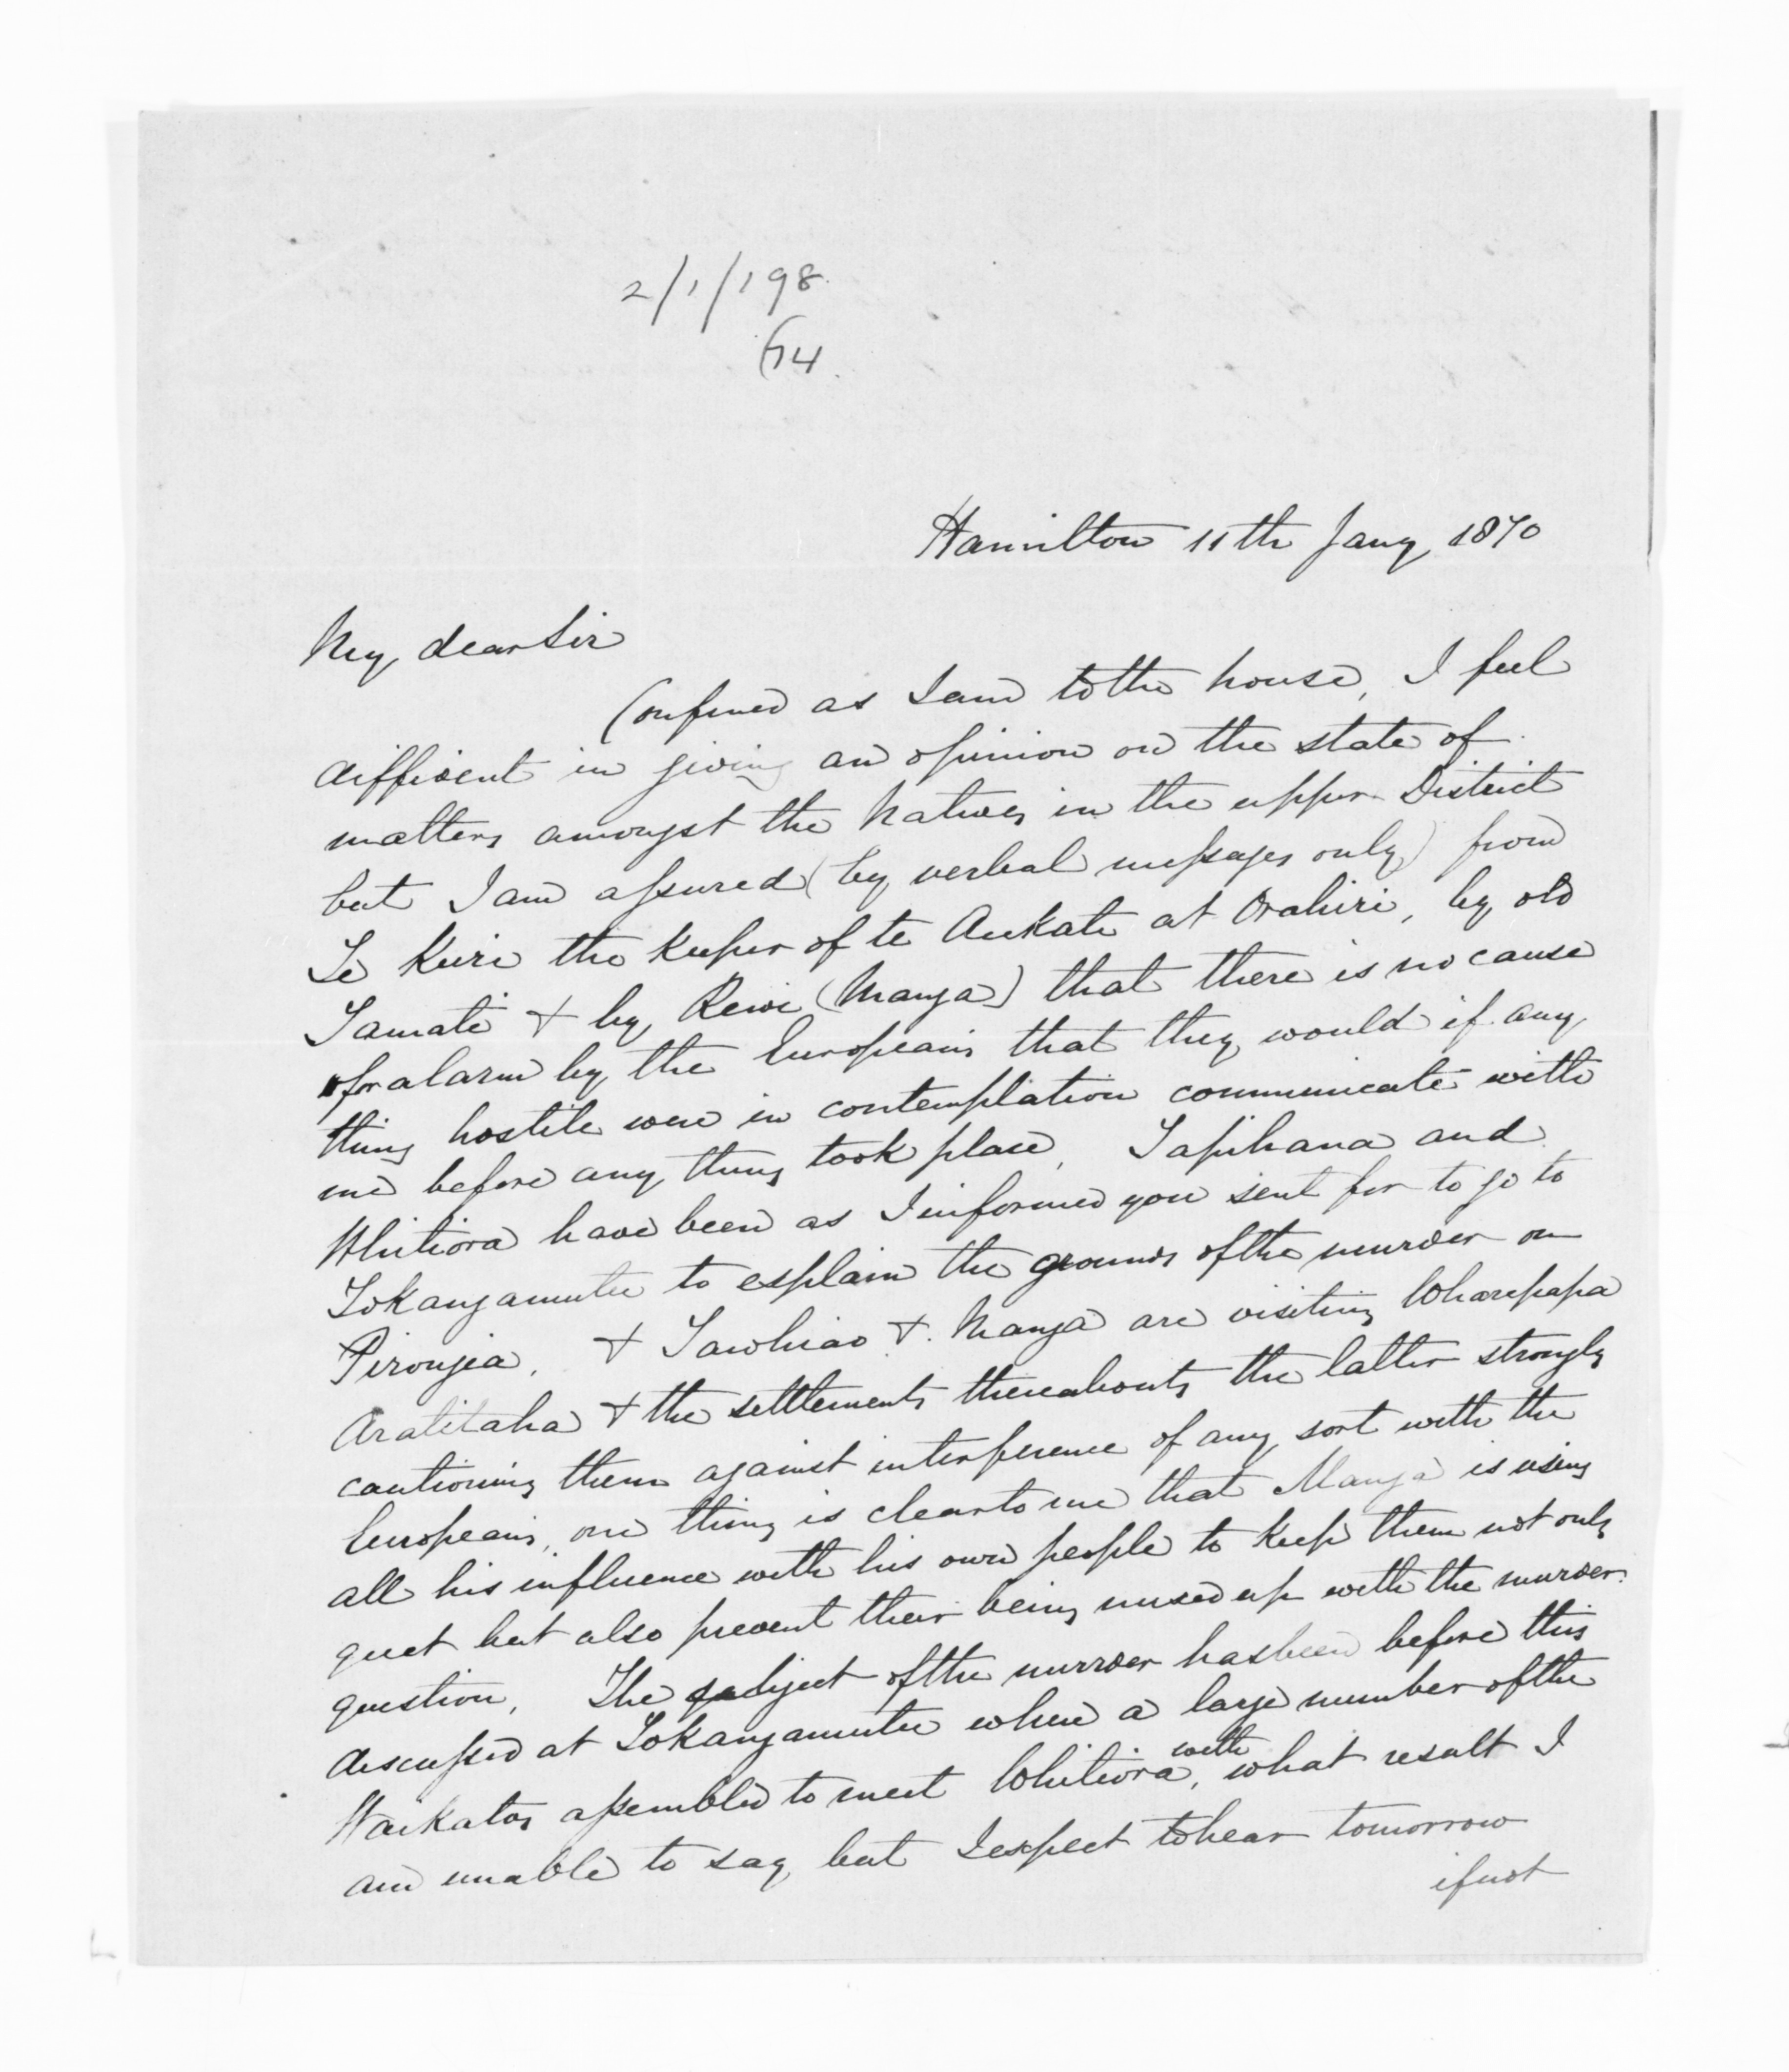 2/1/198
(74
Hamilton 11th Jany 1870
My dear Sir
Confined as I am to the house, I feel
diffident in giving an opinion on the state of
matters amongst the Natives in the upper District
but I am assured (by verbal messages only) from
Te Kuri the Keeper of te Aukati at Orahiri, by old
Tamati & by Rewi (Manga) that there is no cause
for alarm by the Europeans that they would if any
thing hostile were in contemplation communicate with
me before any thing took place, Tapihana and
Whitiora have been as I informed you sent for to go to
Tokangamutu to explain the grounds of the murder on
Pirongia, & Tawhiao & Manga are visiting Wharepapa
Aratitaha & the settlements thereabouts the latter strongly
cautioning them against interference of any sort with the
Europeans, one thing is clear to me that Manga is using
all his influence with his own people to keep them not only
quet but also prevent their being mixed up with the murder
question, The subject of the murder has been before this
discussed at Tokangamutu where a large number of the
Waikatos assembled to meet Whitiora, with what result I
am unable to say, but I expect to hear tomorrow
if not